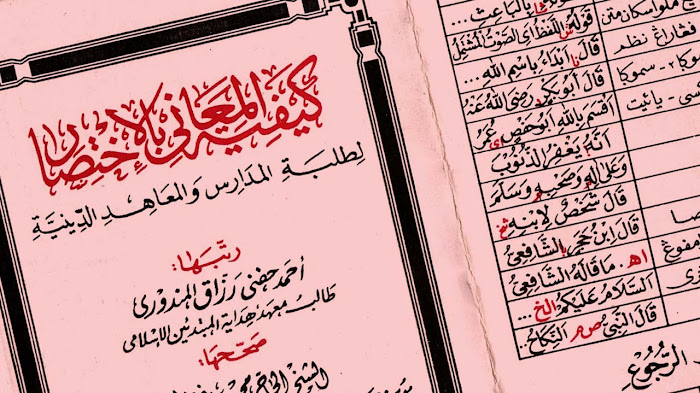 كيفية المعاني بالإختصار
لطلبة المدارس والمعاهد الدينية
رتبها:
أحمد حفني رزاق المندوري
طالب معهد هداية المبتدئين الإسلامي
صححها:
الشيخ الحاج
بالباعث ...
قوله اللفظ اى الصوت المشتمل
قال نا ابداء باسم الله ...
قال أبو بكر رضى الله عنه
اقسم بالله ابو حفص عمر
انه يغفر الذنوب
وعلى اله وصحبه وسلم
قال شخص لابنه
قال ابن حجر الشافعي
اه. ما قاله الشافعي
السلام عليكم الخ ...
قال النبي ص م النكاح.
ملوا سكان متن
نظم
سموكا
يائيت
الرجوع